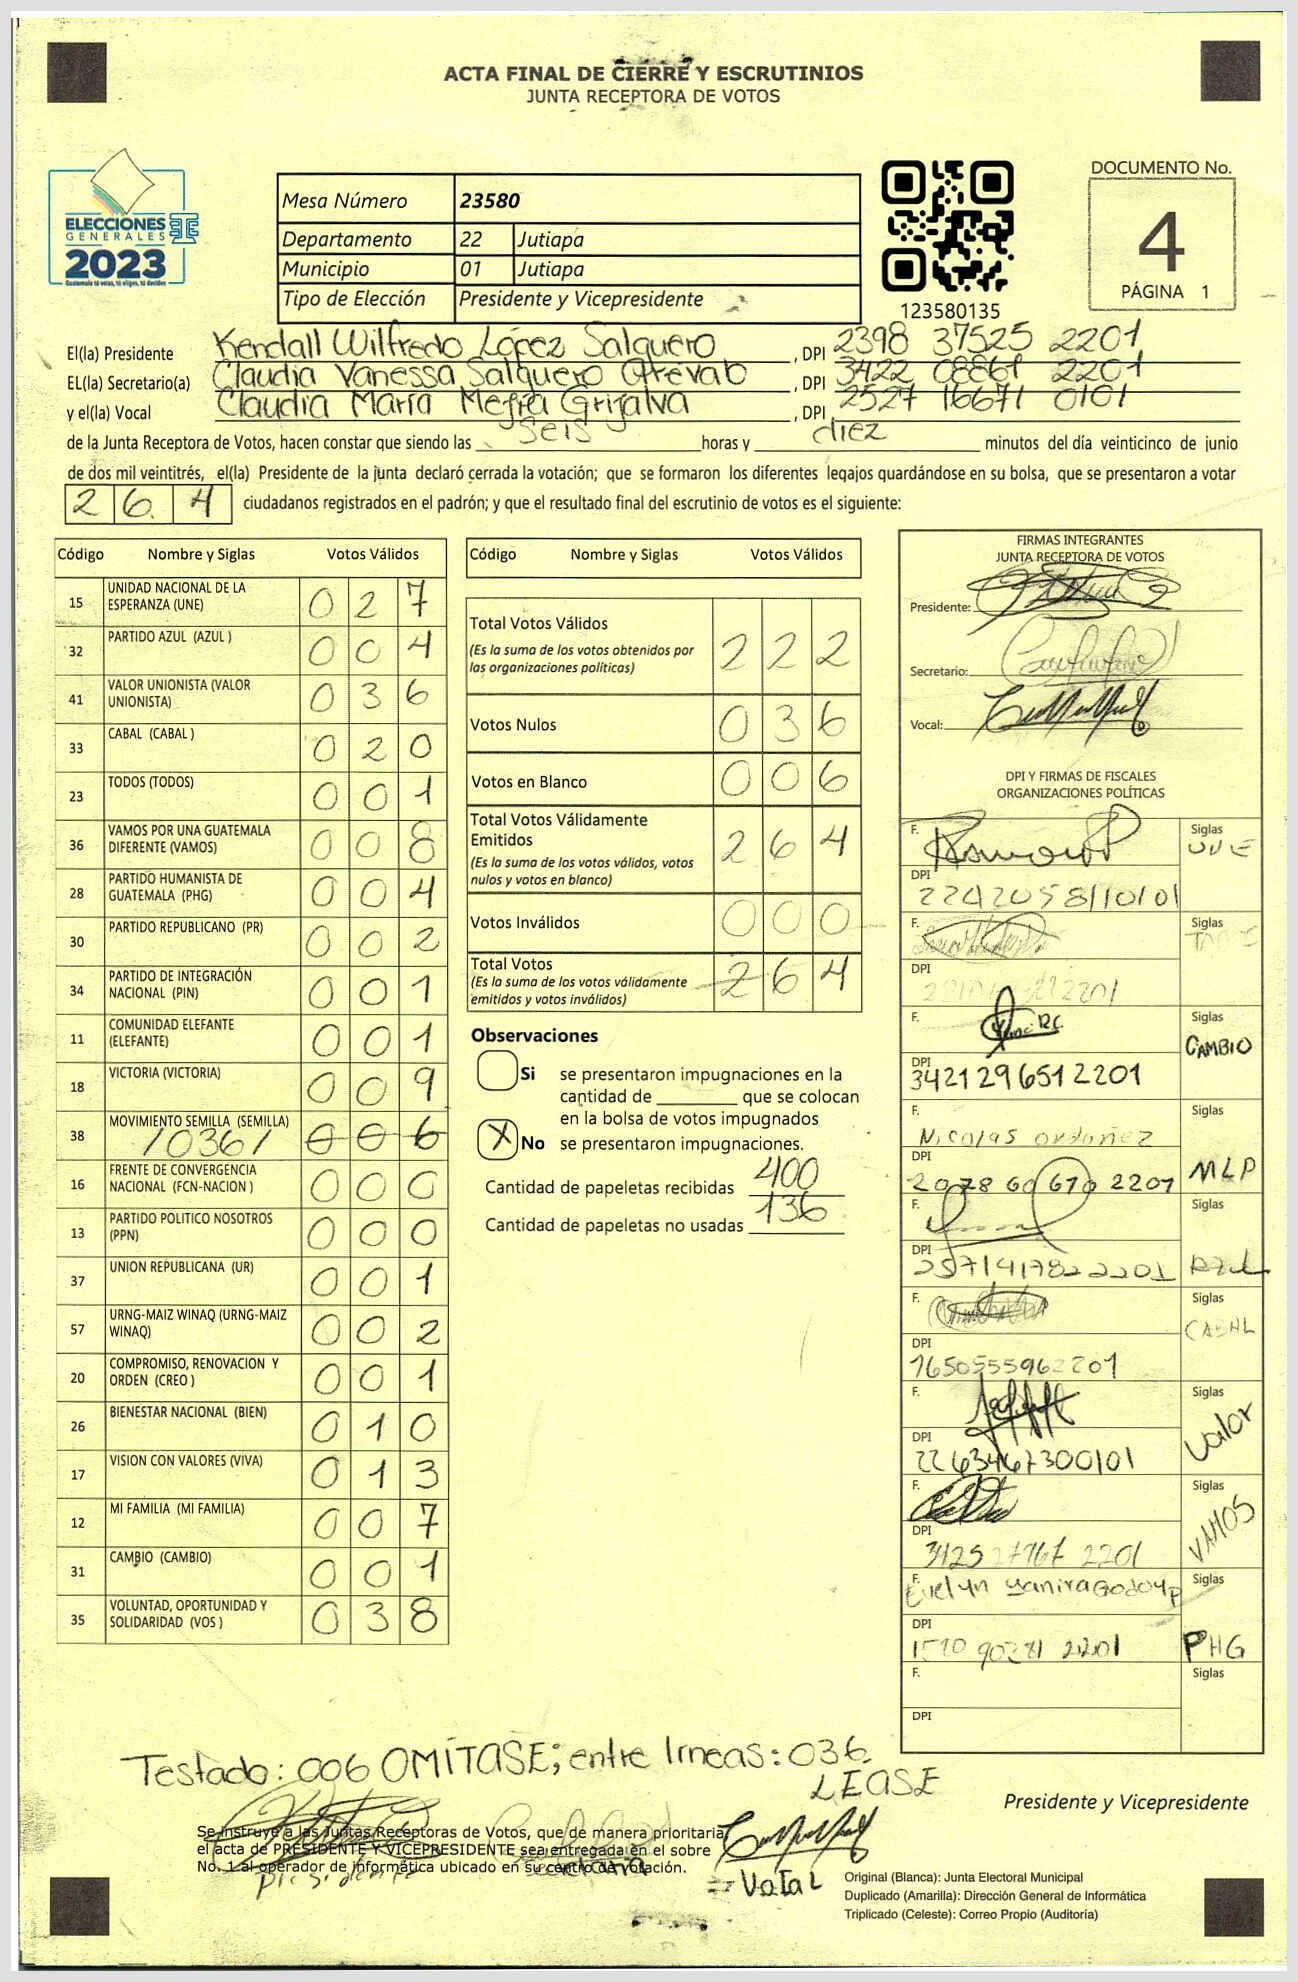 ACTA FINAL DE CIERRE Y ESCRUTINIOS
JUNTA RECEPTORA DE VOTOS
ELECCIONES
GENERALES
2023
Guatemala tú votas, tú eliges, tú decides
Mesa Número 23580
Departamento 22 Jutiapa
Municipio 01 Jutiapa
Tipo de Elección Presidente y Vicepresidente
123580135
DOCUMENTO No.
4
PÁGINA 1
El(la) Presidente Kendall Wilfredo López Salguero, DPI 2398 37525 2201
EL(la) Secretario(a) Claudia Vanessa Salguero, DPI 3422 08861 2201
y el(la) Vocal Claudia María Mejía Grijalva, DPI 2527 16671 0101
de la Junta Receptora de Votos, hacen constar que siendo las seis horas y diez minutos del día veinticinco de junio
de dos mil veintitrés, el(la) Presidente de la junta declaró cerrada la votación; que se formaron los diferentes legajos guardándose en su bolsa, que se presentaron a votar
264 ciudadanos registrados en el padrón; y que el resultado final del escrutinio de votos es el siguiente:
Código Nombre y Siglas Votos Válidos
15 UNIDAD NACIONAL DE LA ESPERANZA (UNE) 027
32 PARTIDO AZUL (AZUL ) 004
41 VALOR UNIONISTA (VALOR UNIONISTA) 036
33 CABAL (CABAL ) 020
23 TODOS (TODOS) 001
36 VAMOS POR UNA GUATEMALA DIFERENTE (VAMOS) 008
28 PARTIDO HUMANISTA DE GUATEMALA (PHG) 004
30 PARTIDO REPUBLICANO (PR) 002
34 PARTIDO DE INTEGRACIÓN NACIONAL (PIN) 001
11 COMUNIDAD ELEFANTE (ELEFANTE) 001
18 VICTORIA (VICTORIA) 009
38 MOVIMIENTO SEMILLA (SEMILLA) /036/ 006
16 FRENTE DE CONVERGENCIA NACIONAL (FCN-NACION ) 000
13 PARTIDO POLITICO NOSOTROS (PPN) 000
37 UNION REPUBLICANA (UR) 001
57 URNG-MAIZ WINAQ (URNG-MAIZ WINAQ) 002
20 COMPROMISO, RENOVACION Y ORDEN (CREO ) 001
26 BIENESTAR NACIONAL (BIEN) 010
17 VISION CON VALORES (VIVA) 013
12 MI FAMILIA (MI FAMILIA) 007
31 CAMBIO (CAMBIO) 001
35 VOLUNTAD, OPORTUNIDAD Y SOLIDARIDAD (VOS ) 038
Código Nombre y Siglas Votos Válidos
Total Votos Válidos 222
(Es la suma de los votos obtenidos por
las organizaciones políticas)
Votos Nulos 036
Votos en Blanco 006
Total Votos Válidamente
Emitidos 264
(Es la suma de los votos válidos, votos
nulos y votos en blanco)
Votos Inválidos 000
Total Votos 264
(Es la suma de los votos válidamente
emitidos y votos inválidos)
Observaciones
Si se presentaron impugnaciones en la
cantidad de ________ que se colocan
en la bolsa de votos impugnados
X No se presentaron impugnaciones.
Cantidad de papeletas recibidas 400
Cantidad de papeletas no usadas 136
FIRMAS INTEGRANTES
JUNTA RECEPTORA DE VOTOS
Presidente:
Secretario:
Vocal:
DPI Y FIRMAS DE FISCALES
ORGANIZACIONES POLÍTICAS
F. Siglas UNE
DPI 2242058110101
F. Siglas
DPI
F. Siglas CAMBIO
DPI 3421296512201
F. Nicolas Ordoñez Siglas MLP
DPI 2078 60 670 2201
F. Siglas Azul
DPI 2571417822201
F. Siglas CABAL
DPI 1650555962201
F. Siglas Valor
DPI 2263467300101
F. Siglas VAMOS
DPI 2201
F. Evelyn Yanira Godoy P Siglas PHG
DPI 2201
F. Siglas
DPI
Testado: 006 OMITASE; entre lineas: 036.
LEASE
Presidente y Vicepresidente
Se instruye a las Juntas Receptoras de Votos, que de manera prioritaria,
el acta de PRESIDENTE Y VICEPRESIDENTE sea entregada en el sobre
No. 1 al operador de informática ubicado en su centro de votación.
presidente
Vocal
Original (Blanca): Junta Electoral Municipal
Duplicado (Amarilla): Dirección General de Informática
Triplicado (Celeste): Correo Propio (Auditoría)